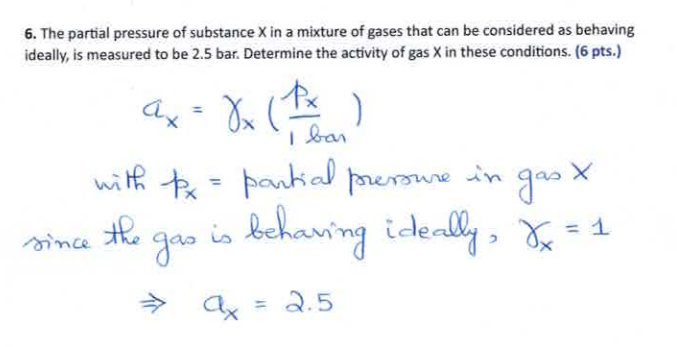 6. The partial pressure of substance X in a mixture of gases that can be considered as behaving
ideally, is measured to be 2.5 bar. Determine the activity of gas X in these conditions. (6 pts.)
a_x = γ_x (p_x / 1 bar)
with p_x = partial pressure in gas X
since the gas is behaving ideally, γ_x = 1
⇒ a_x = 2.5